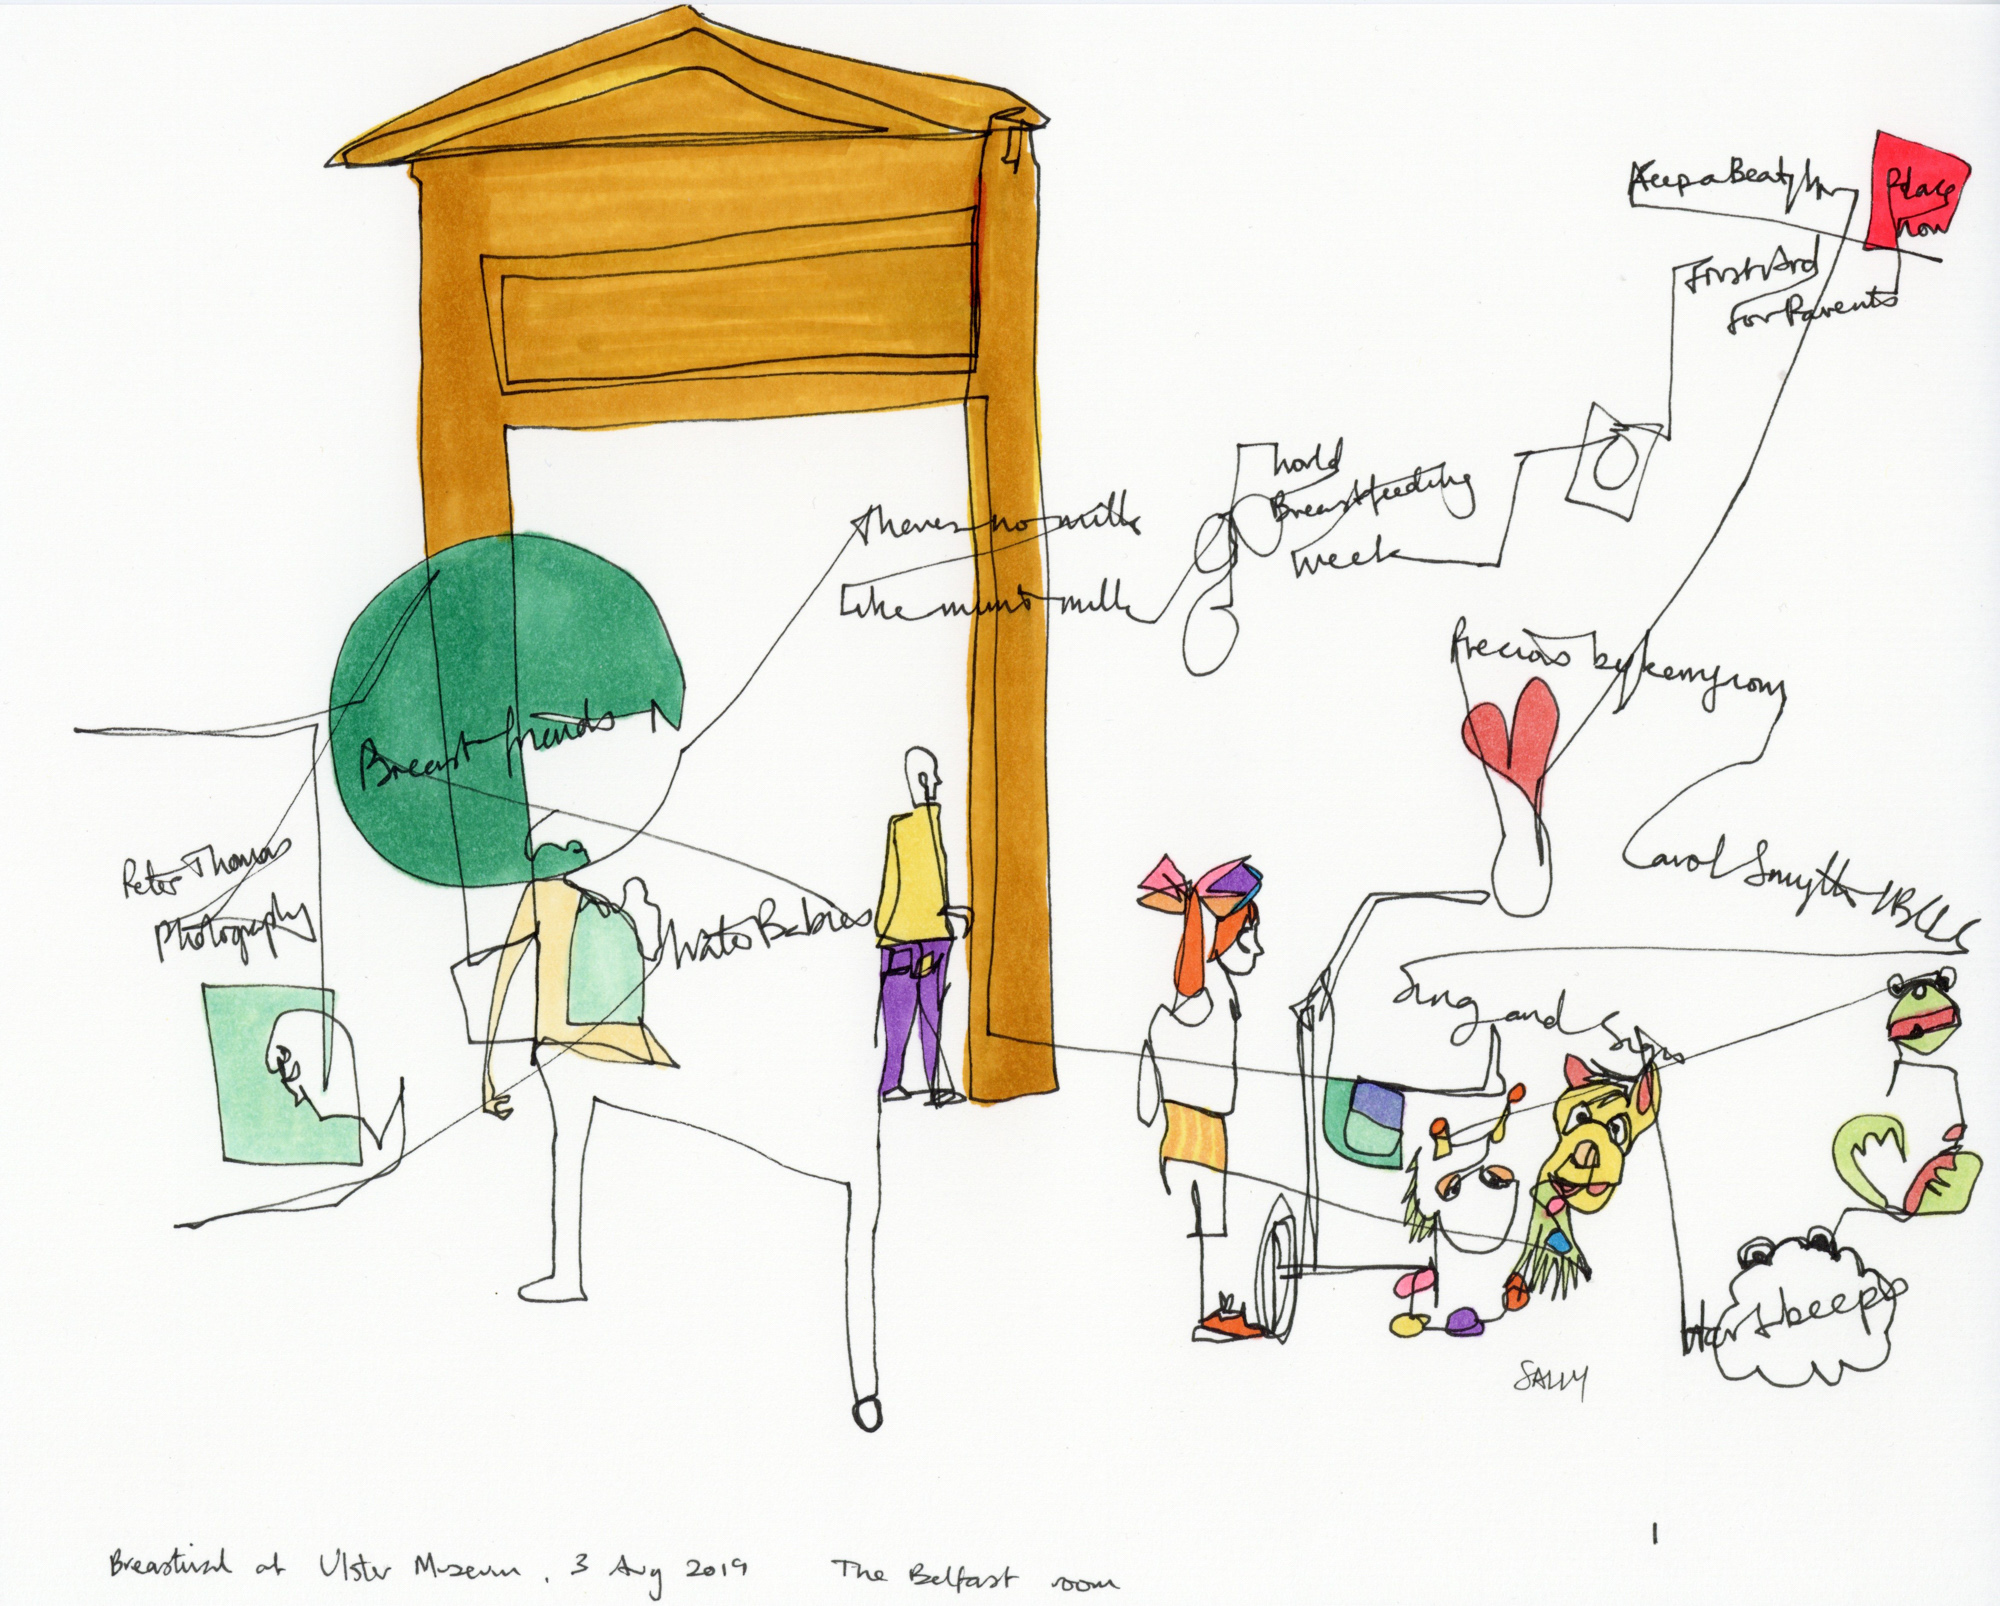 Keep a Beat
Place
now
First Aid
for Parents
World
Breastfeeding
Week
Theres no milk
like mums milk
Precious by
Breast friends N
Peter Thomas
Photography
Water Babies
Carol Smyth IBCLC
Sing and Sign
Hartbeeps
SALLY
1
Breastival at Ulster Museum. 3 Aug 2019 The Belfast room